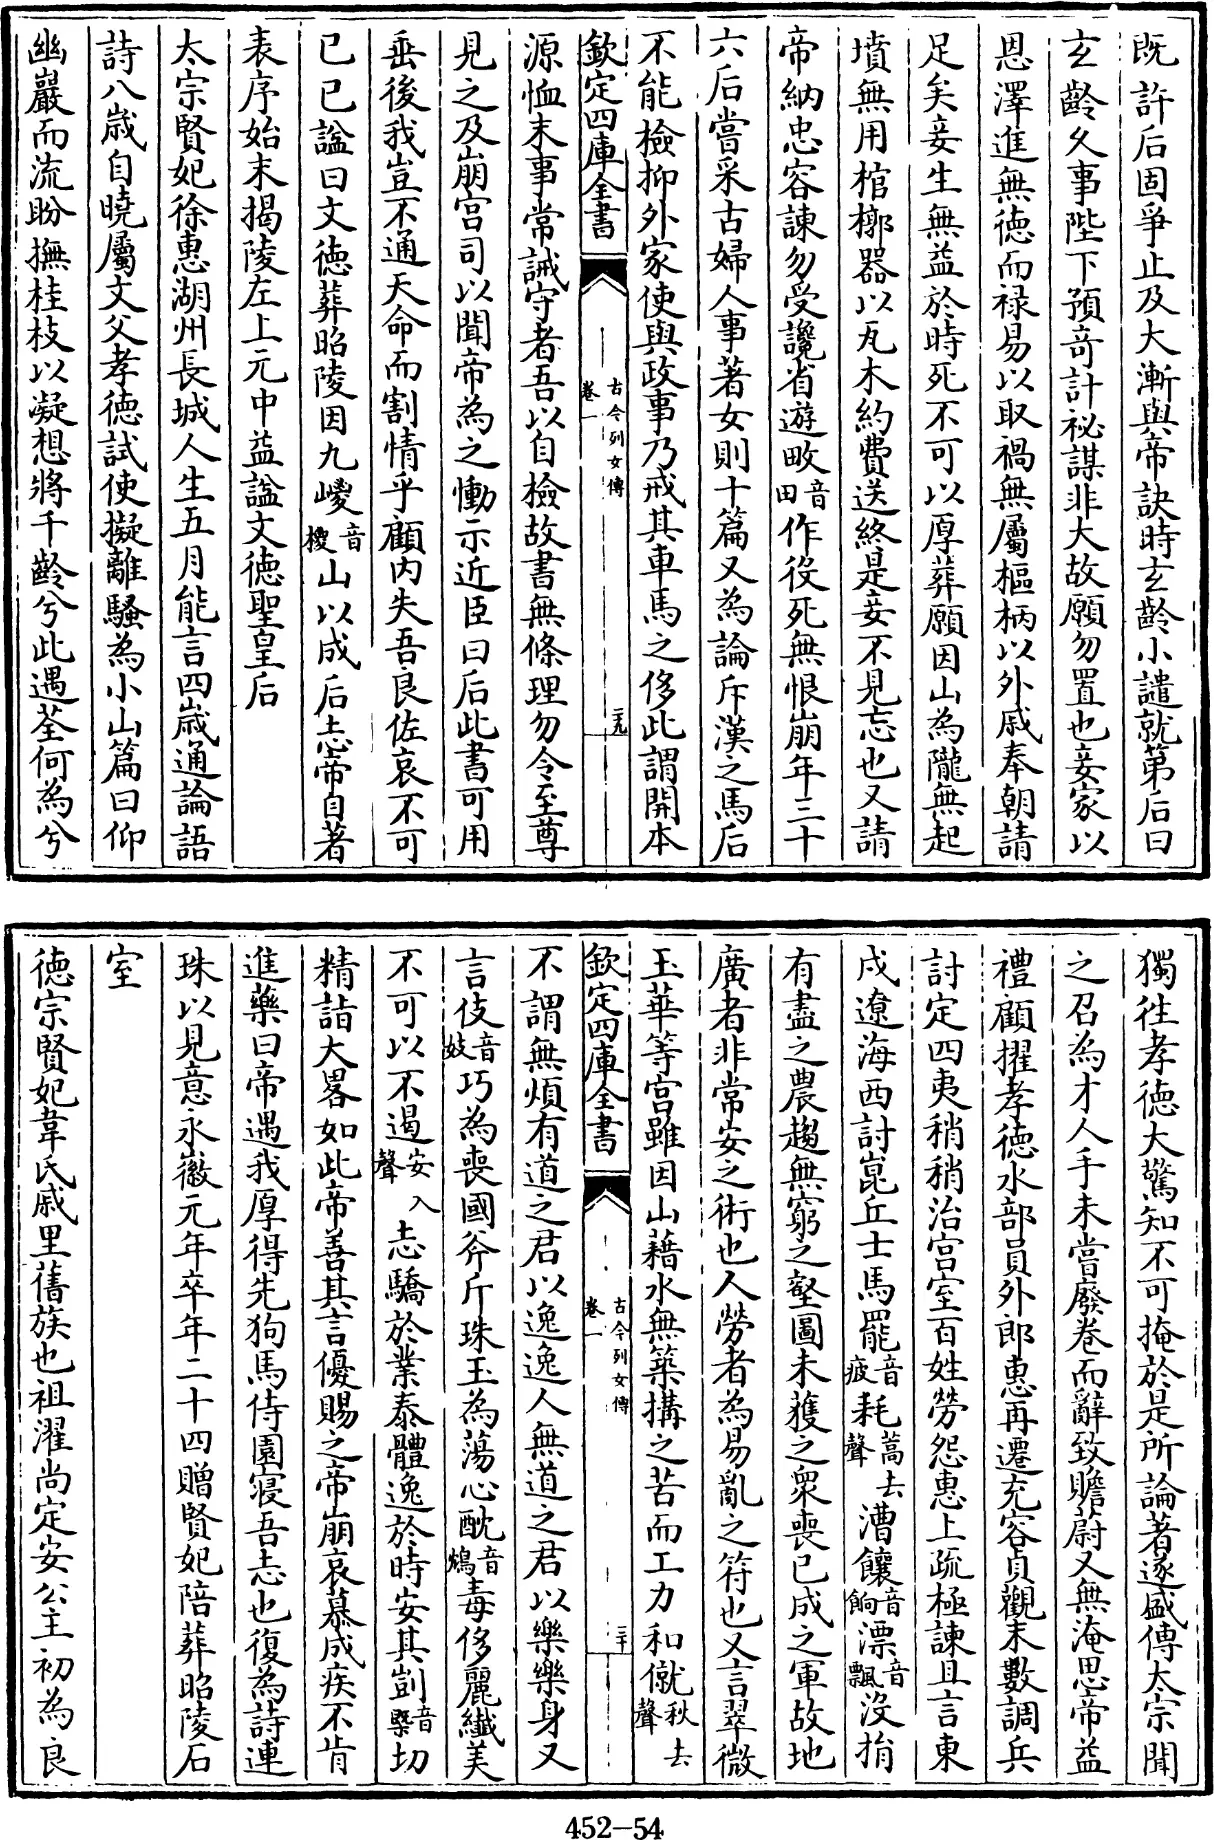 既許后固爭止及大漸與帝訣時玄齡小譴就第后曰
玄齡久事陛下預奇計祕謀非大故願勿置也妾家以
恩澤進無德而禄易以取禍無屬樞柄以外戚奉朝請
足矣妾生無益於時死不可以厚葬願因山為隴無起
墳無用棺槨器以瓦木約費送終是妾不見忘也又請
帝納忠容諫勿受讒省遊畋音田作役死無恨崩年三十
六后嘗采古婦人事著女則十篇又為論斥漢之馬后
不能檢抑外家使與政事乃戒其車馬之侈此謂開本
欽定四庫全書
古今列女傳
卷一
二十九
源恤末事常誡守者吾以自檢故書無條理勿令至尊
見之及崩宮司以聞帝為之慟示近臣曰后此書可用
垂後我豈不通天命而割情乎顧内失吾良佐哀不可
已已諡曰文德葬昭陵因九嵕音㯶山以成后志帝自著
表序始末揭陵左上元中益諡文德聖皇后
太宗賢妃徐惠湖州長城人生五月能言四歲通論語
詩八歲自曉屬文父孝德試使擬離騷為小山篇曰仰
幽巖而流盼撫桂枝以凝想將千齡兮此遇荃何為兮
獨往孝德大驚知不可掩於是所論著遂盛傳太宗聞
之召為才人手未嘗廢卷而辭致贍蔚又無淹思帝益
禮顧擢孝德水部員外郎惠再遷充容貞觀末數調兵
討定四夷稍稍治宮室百姓勞怨惠上疏極諫且言東
戍遼海西討崑丘士馬罷音疲耗蒿去聲漕饟音餉漂音飄沒捐
有盡之農趨無窮之壑圖未獲之衆喪已成之軍故地
廣者非常安之術也人勞者為易亂之符也又言翠微
玉華等宮雖因山藉水無築搆之苦而工力和僦秋去聲
欽定四庫全書
古今列女傳
卷一
三十
不謂無煩有道之君以逸逸人無道之君以樂樂身又
言伎音妓巧為喪國斧斤珠玉為蕩心酖音鴆毒侈麗纖美
不可以不遏安入聲志驕於業泰體逸於時安其剴音槩切
精詣大畧如此帝善其言優賜之帝崩哀慕成疾不肯
進藥曰帝遇我厚得先狗馬侍園寝吾志也復為詩連
珠以見意永徽元年卒年二十四贈賢妃陪葬昭陵石
室
德宗賢妃韋氏戚里舊族也祖濯尚定安公主初為良
452-54